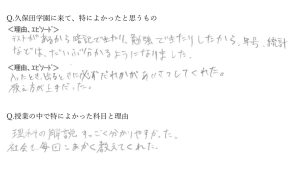 Q.久保田学園に来て、特によかったと思うもの
<理由、エピソード>
テストがあるから暗記できたり、勉強できたりしたから、年号、統計
などは、だいぶわかるようになりました。
<理由、エピソード>
入ったとき、塾などに必ずだれかがあいさつしてくれた。
教え方が上手だった。
Q.授業の中で特によかった科目と理由
理科の解説すっごく分かりやすかった。
社会も毎回こまかく教えてくれた。